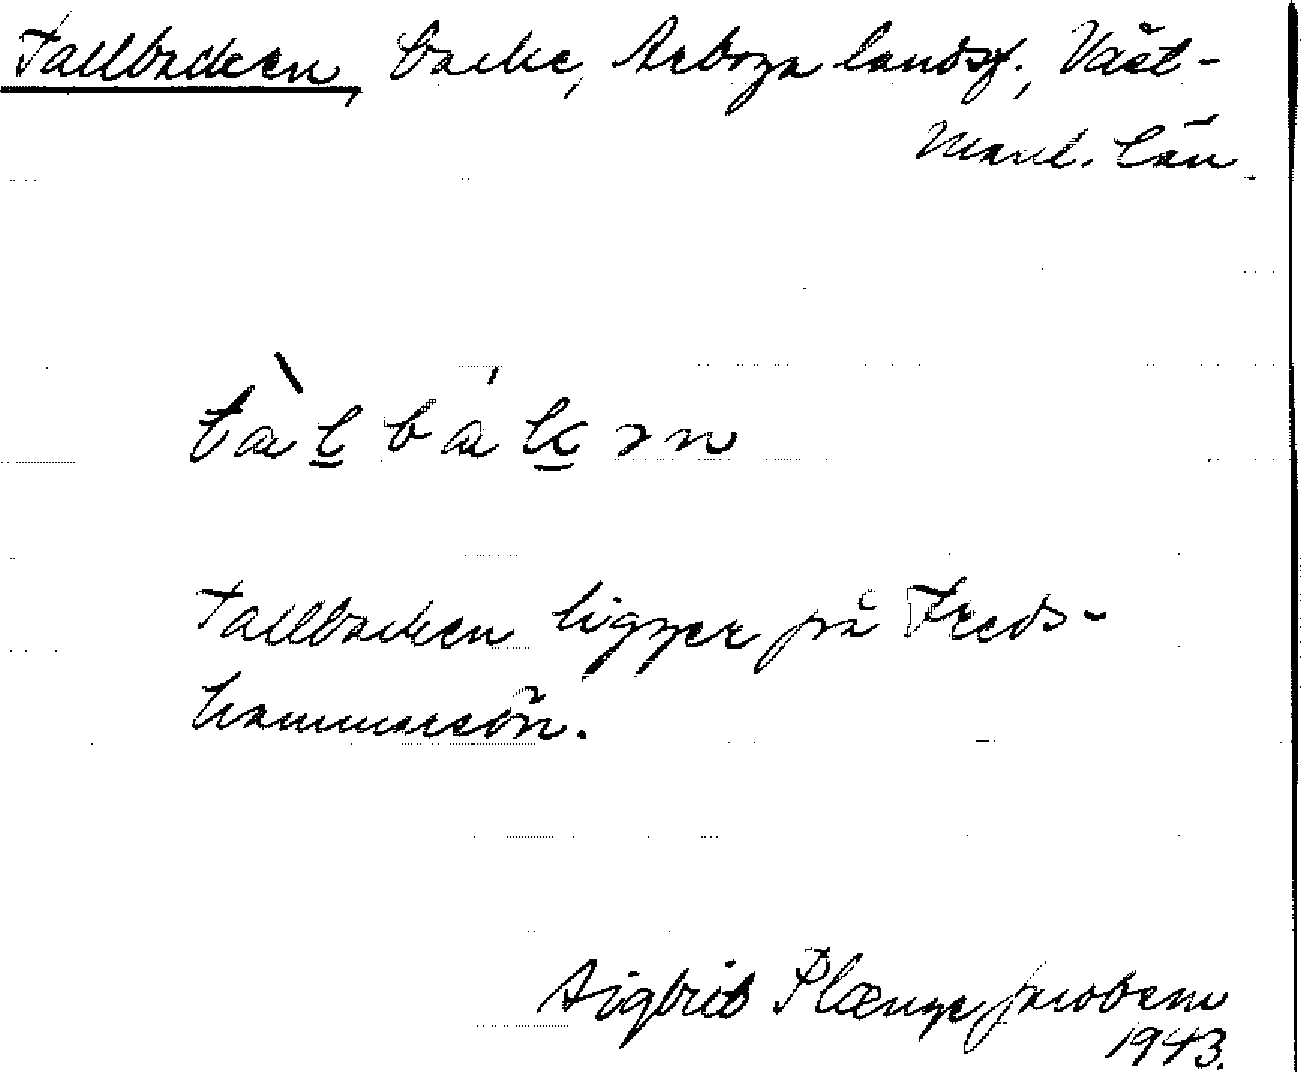 Tallbacken, backe, Arboga landsf., Väst-
manl. län.
tàl̲bák̲ən
Tallbacken ligger på Freds-
hammarsön.
Sigbrit Plænge Jacobson
1943.